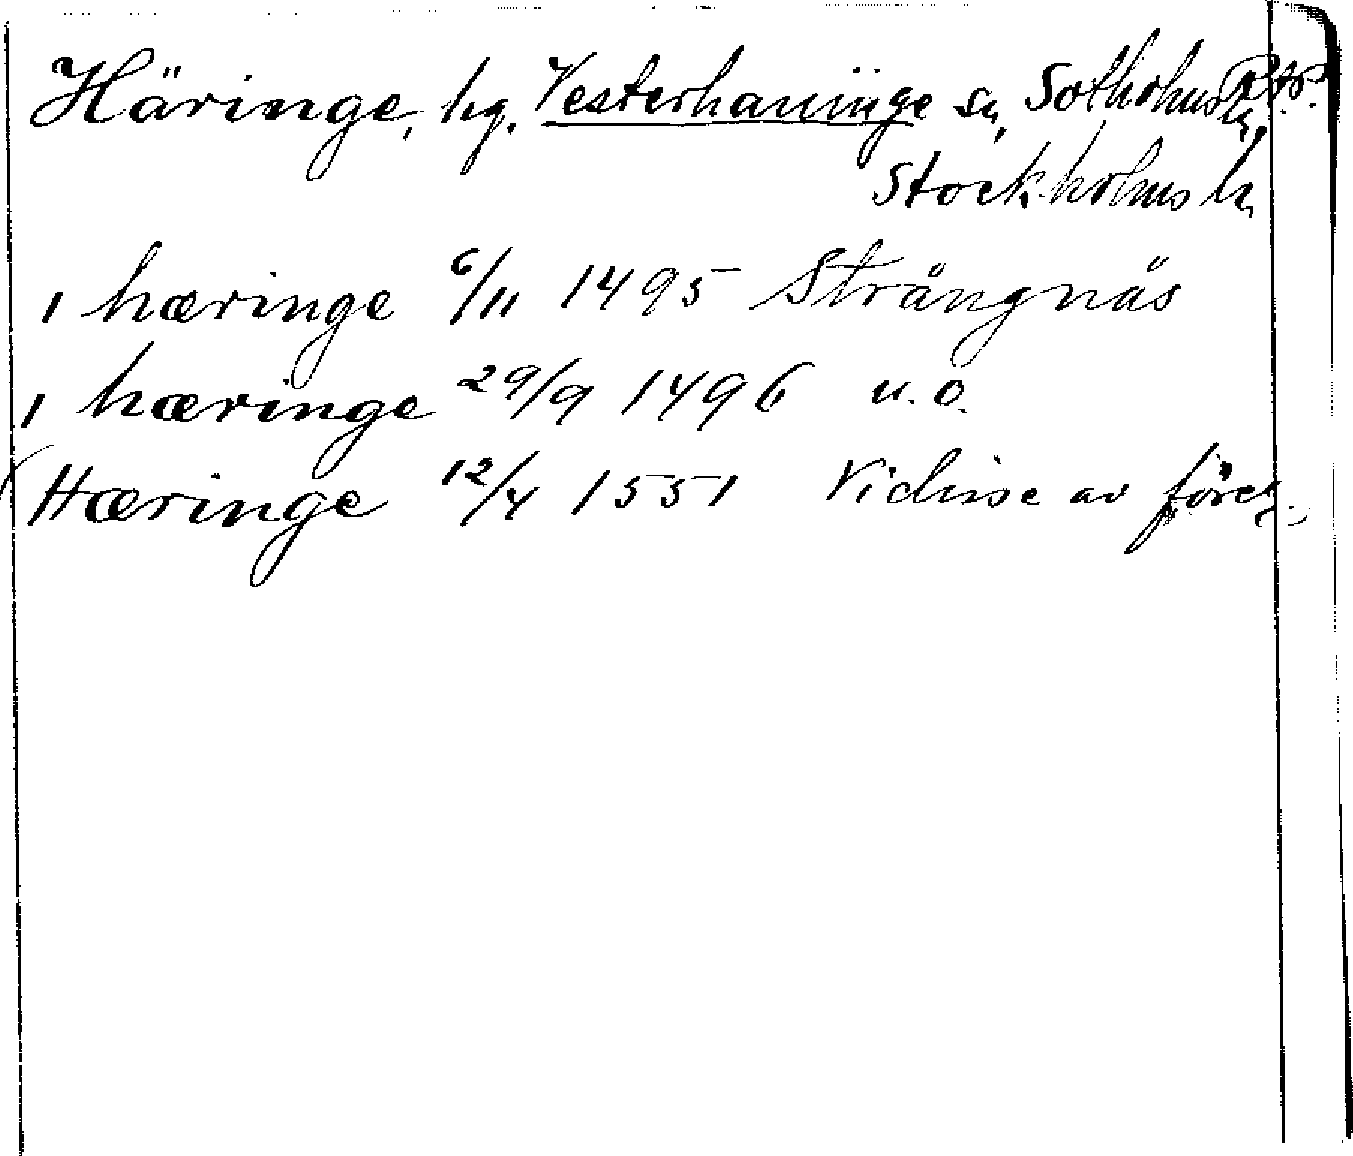 Häringe, hg. Vesterhaninge sn, Sotholms h, RAP.
Stockholms ln
1 hæringe 6/11 1495 Strängnäs
1 hæringe 29/9 1496 u.o.
Hæringe 12/4 1551 Vidisse av föreg.